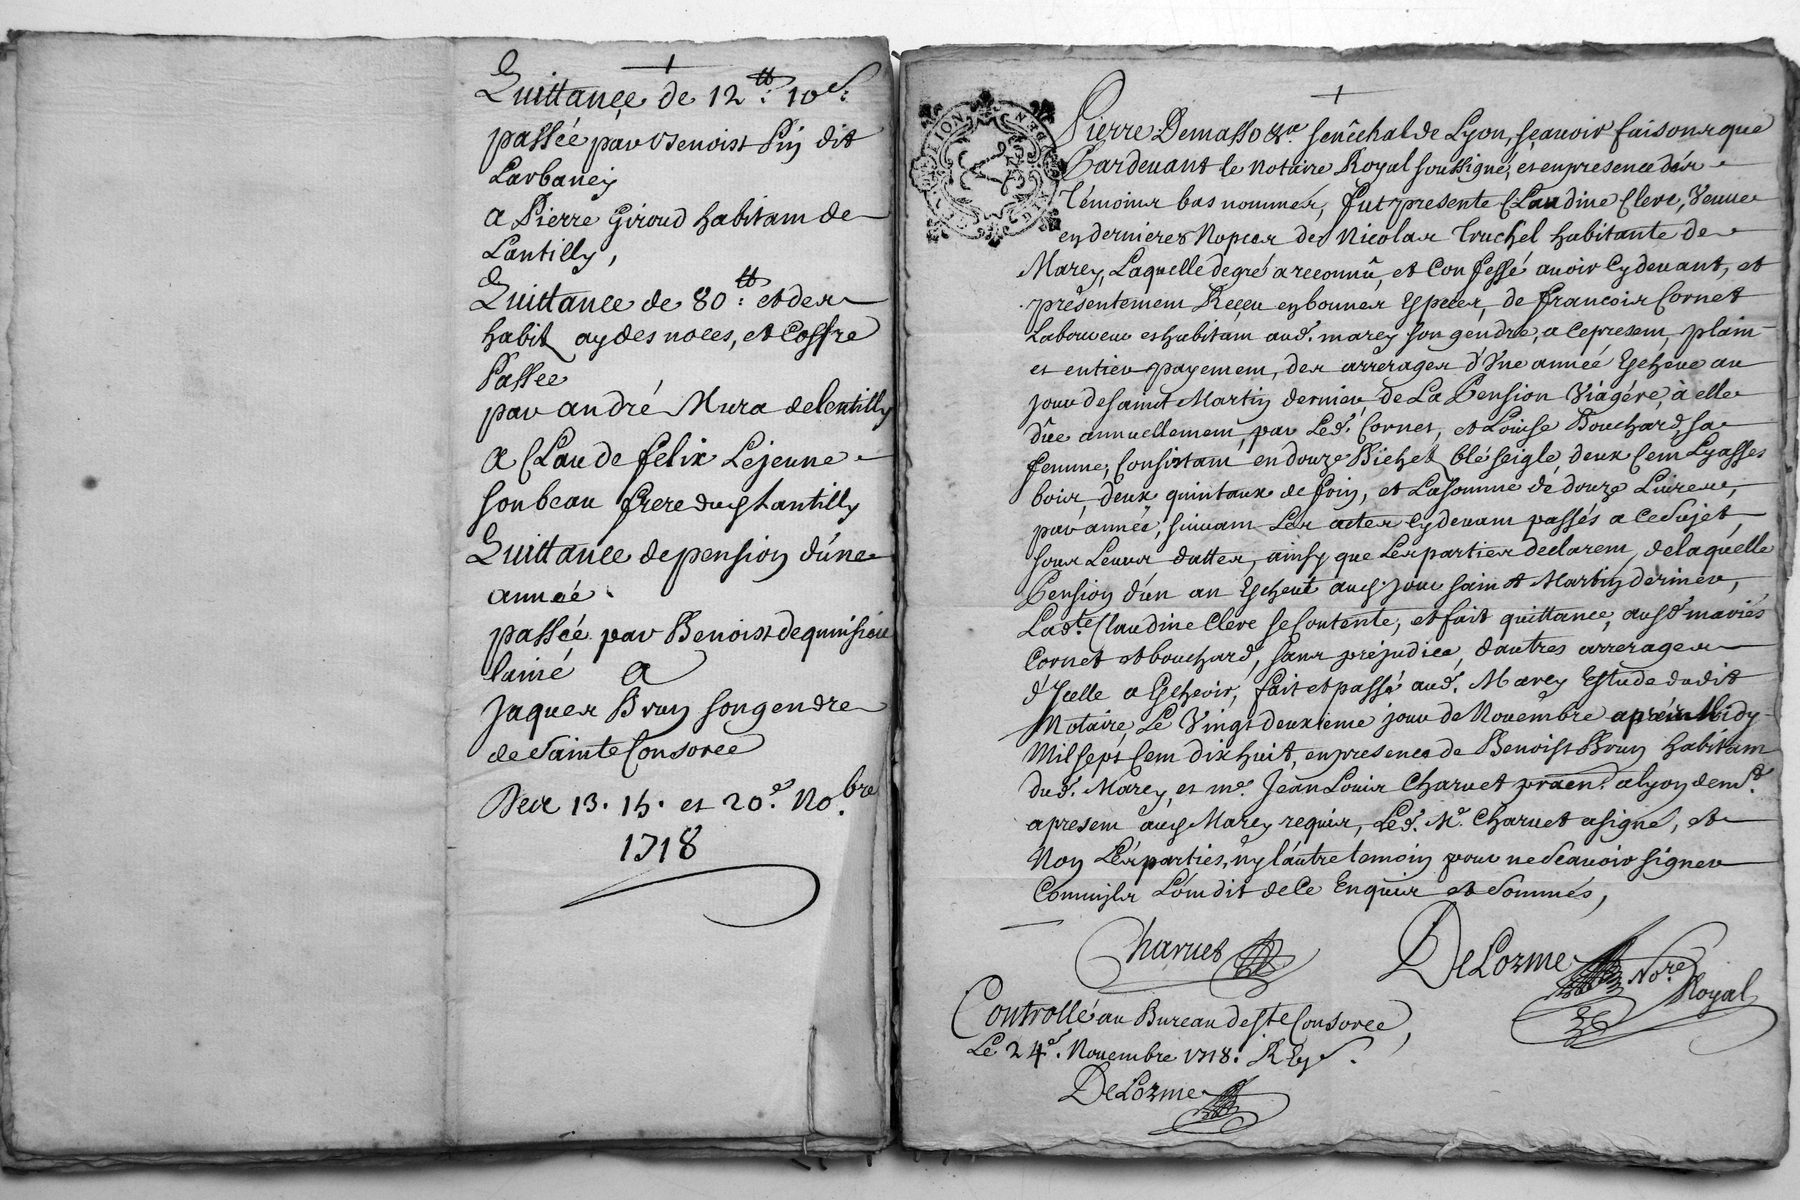 Quittance de 12tt: 10s:
passée par Benoist Pin dit
Larbaney
a Pierre Giroud habitant de
Lantilly,
Quittance de 80tt: et des
habit aydes noces, et Coffre
Passée
par andré Mura delentilly
a Claude felix Lejeune
son beau frere dud Lantilly
Quittance de pension d'une
année.
passée par Benoist dequinsieu
lainé a
Jaques Brun son gendre
de Sainte Consorce
Des 13. 15. et 20e. Nobre.
1718
Pierre Demasso &a. senêchal de Lyon, sçavoir faisons que
Pardevant le Notaire Royal soussigné, et en presence des
Témoins bas nommes, fut presente Claudine Clere, Veuve
en dernieres Nopces de Nicolas Truchel habitante de
Marcy, Laquelle de gré a reconnû, et Confessé avoir Cydevant, et
presentement Reçeu en bonnes Especes, de françois Cornet
Laboureur et habitant aud. marcy son gendre, a ce present, plain
et entier payement, des arrerages d'Une année Escheue au
jour de saint Martin dernier de La Pension Viagére, à elle
dûe annuellement, par Led. Cornet, et Louise Bouchard, sa
femme, Consistant en douze Bichet blé seigle, deux Cent Lyasses
bois, deux quintaux de foin, et La somme de douze Livres,
par année, suivant Les actes Cydevant passés a ce Sujet,
sous Leurs dattes, ainsy que Les parties declarent, de laquelle
Pension d'un an Escheüe aud. jour saint Martin dernier,
Lad.te Claudine Clere se Contente, et fait quittance, ausd. mariés
Cornet et bouchard, sans prejudice, d'autres arrerages
d'Icelle a Eschevir, fait et passé aud. Marcy Estude dudit
Notaire, Le Vingt deuxieme jour de Novembre après Midy
Mil sept Cent dix huit, en presence de Benoist Brun habitant
dud. Marcy, et me. Jean Louis Charvet praen. a lyon demt.
a present aud Marcy requis, Led. Me. Charvet a signé, et
Non Les parties, ny l'autre temoin pour ne Scavoir signer
Comm'ils L'ont dit de Ce Enquis et Sommés,
Charvet
DeLorme Nore.
Royal
Controllé au Bureau de Ste Consorce,
Le 24e. Novembre 1718.
DeLorme